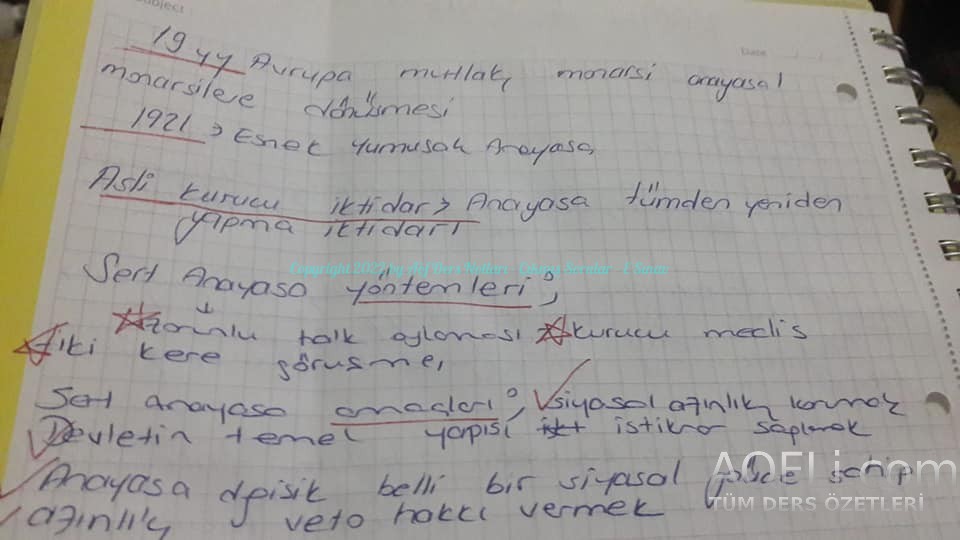 Subject
Date
19 yy Avrupa mutlak monarsi anayasal
monarsilere dönüsmesi
1921 > Esnek Yumusak Anayasa
Asli kurucu iktidar > Anayasa tümden yeniden
yapma iktidarı
Sert Anayasa yöntemleri;
zorunlu halk oylaması kurucu meclis
iki kere görüsme,
Sert anayasa amaçları; siyasal azınlık korumak
Devletin temel yapısı istikrar saplamak
Anayasa dpisik belli bir siyasal güçle sahip
azınlık veto hakkı vermek
AOFLi.com
TÜM DERS ÖZETLERİ